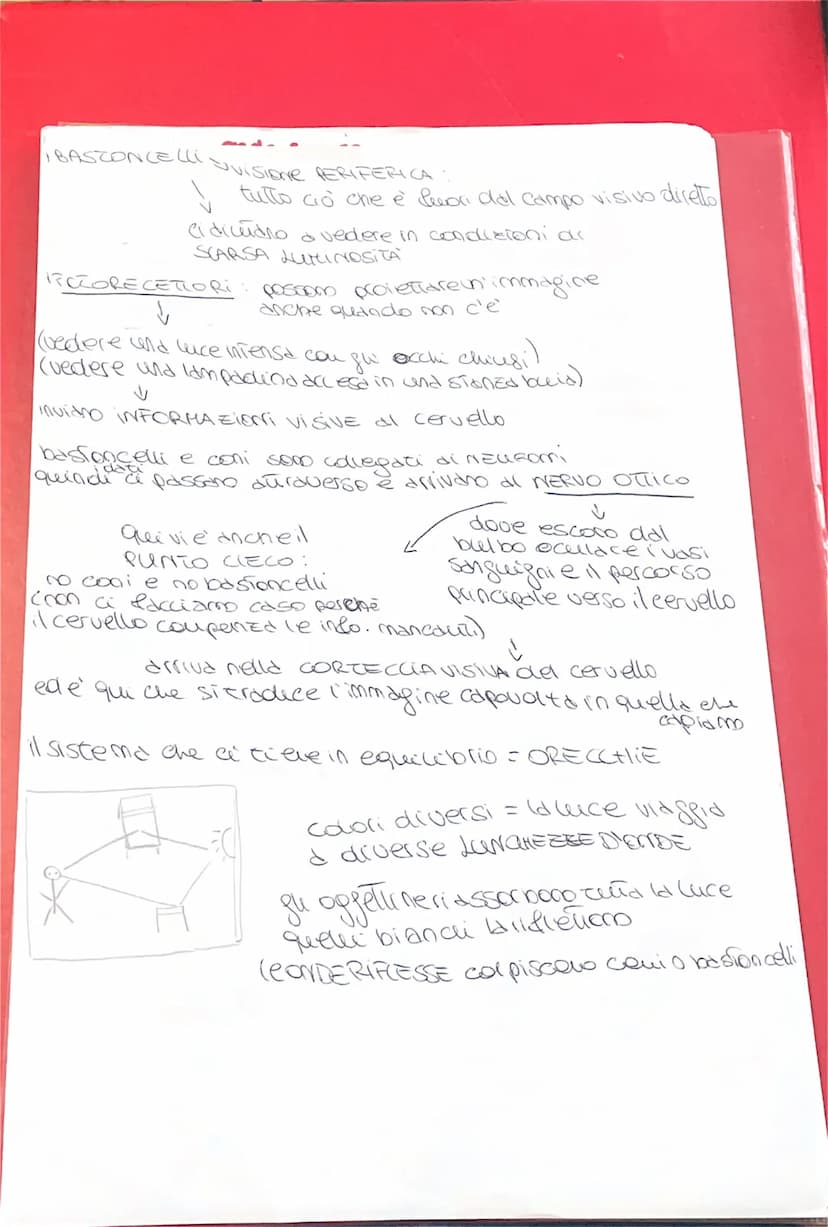 I BASTONCELLI → VISIONE PERIFERICA :
tutto ciò che è fuori dal campo visivo diretto
ci aiutano a vedere in condizioni di
SCARSA LUMINOSITÀ
FOTORECETTORI : possono proiettare un'immagine
anche quando non c'è
(vedere una luce intensa con gli occhi chiusi)
(vedere una lampadina accesa in una stanza buia)
inviano INFORMAZIONI VISIVE al cervello
bastoncelli e coni sono collegati ai NEURONI
quindi i dati ci passano attraverso e arrivano al NERVO OTTICO
dove escono dal
bulbo oculare i vasi
sanguigni e il percorso
principale verso il cervello
Qui vi è anche il
PUNTO CIECO :
no coni e no bastoncelli
(non ci facciamo caso perché
il cervello compensa le info. mancanti)
arriva nella CORTECCIA VISIVA del cervello
ed è qui che si traduce l'immagine capovolta in quella che
capiamo
il sistema che ci tiene in equilibrio = ORECCHIE
colori diversi = la luce viaggia
a diverse LUNGHEZZE D'ONDE
gli oggetti neri assorbono tutta la luce
quelli bianchi la riflettono
(le ONDE RIFLESSE colpiscono coni o bastoncelli